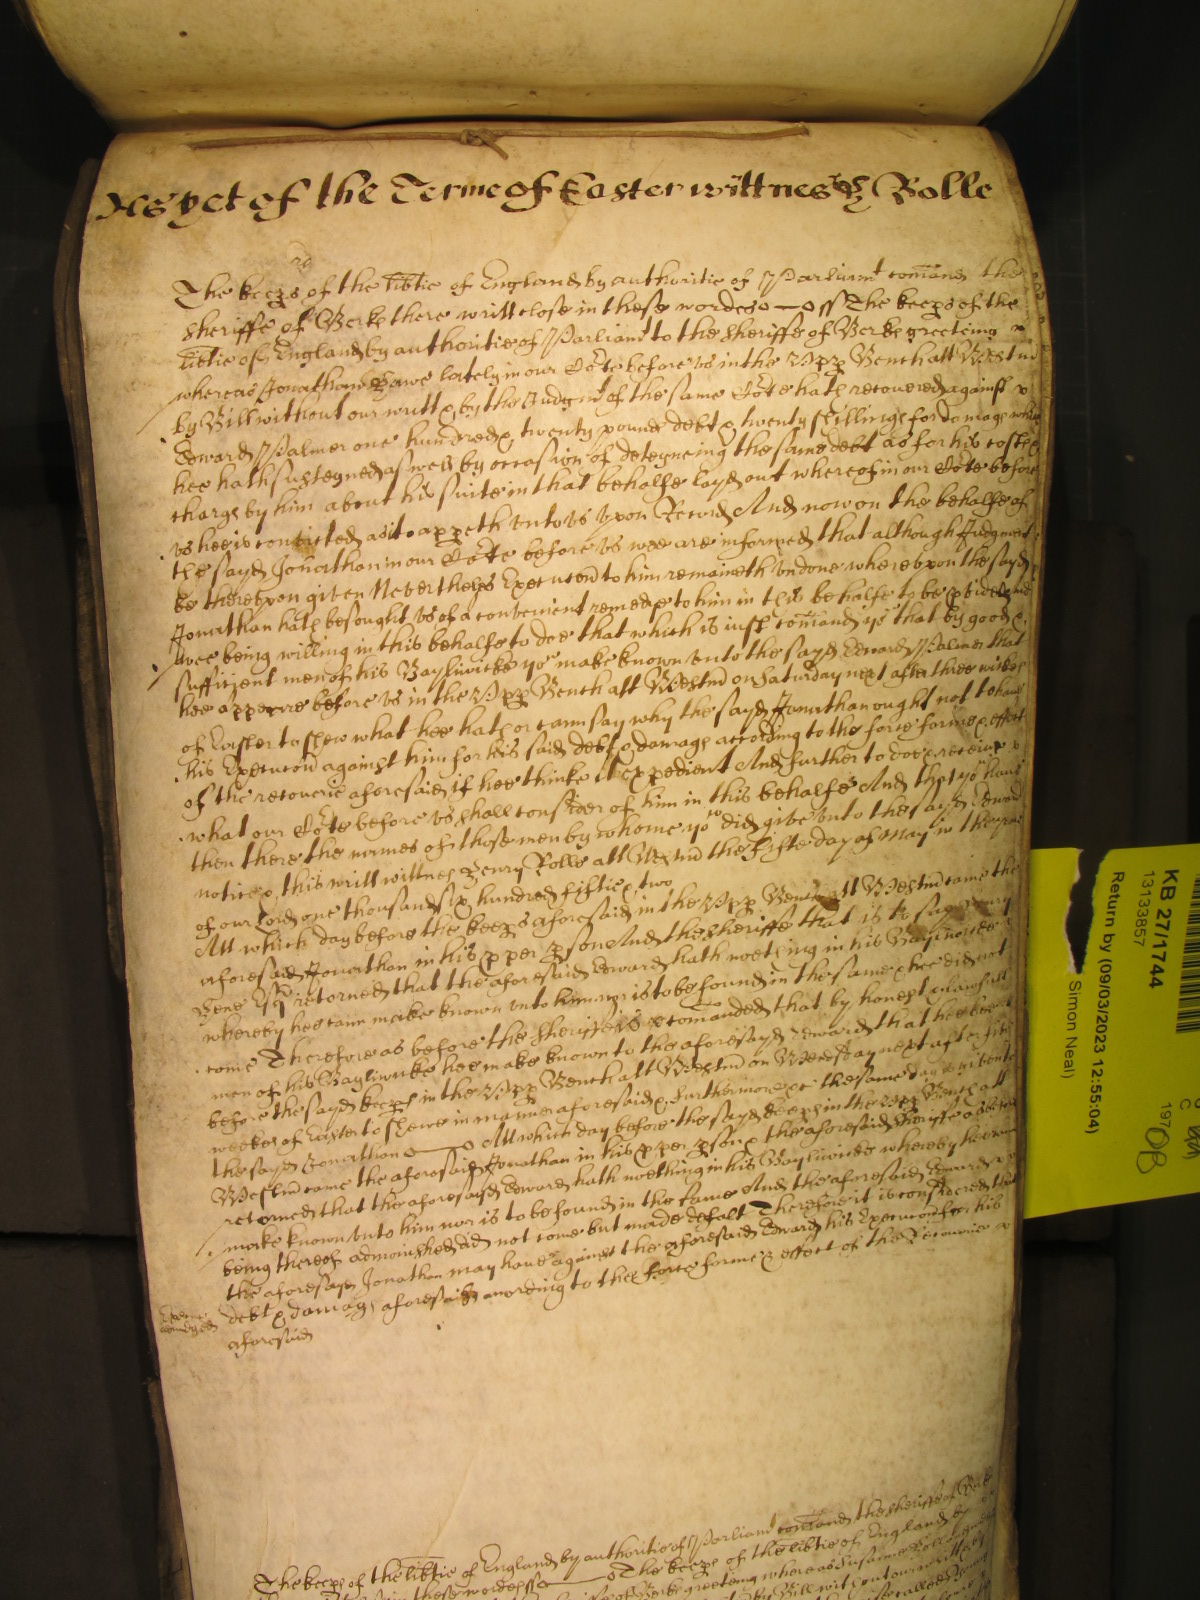 As yet of the Terme of Easter wittnes H Rolle
The keeps of the libtie of England by authoritie of Parliamt comand the
sheriffe of Berk there writt close in these wordes ss The keeps of the
libtie of England by authoritie of Parliamt to the sheriffe of Berk greeting
whereas Jonathan lately in our Corte before us in the Upp Bench att Westm
by Bill without our writt & by the Judgmt of the same Corte hath recovered against
Edward Palmer one hundred & twenty pounds debt & twenty shillings for damage which
hee hath susteyned aswell by occasion of deteyneing the same debt as for his costs &
charge by him about his suite in that behalfe layd out whereof in our Corte before
us hee is convicted as it appeth unto us upon Record And now on the behalfe of
the sayd Jonathan in our Corte before us wee are informed that although Judgment
be thereupon given Neverthelesse Execucon to him remaineth undone whereupon the sayd
Jonathan hath besought us of a convenient remedye to him in this behalfe to be pvided and
wee being willing in this behalfe to doe that which is just comand you that by good &
sufficient men of his Bayliwicke you make known unto the sayd Edward Palmer that
hee appeare before us in the Upp Bench att Westm on Saturday next after three weekes
of Easter to shew what hee hath or cann say why the sayd Jonathan ought not to have
his Execucon against him for his said debt & damage according to the force forme & effect
of the recoverie aforesaid if hee thinke it expedient And further to doe & receive
what our Corte before us shall consider of him in this behalfe And that you have
then there the names of those men by whome you did give unto the sayd Edward
notice & this writt wittnes Henry Rolle att Westm the fifte day of May in the yeare
of our Lord one thousand six hundred fiftie & two
Att which day before the keeps aforesaid in the Upp Bench att Westm came the
aforesaid Jonathan in his pper pson And the sheriffe that is to say
retorned that the aforesaid Edward hath nothing in his Bayliwicke
whereby hee cann make known unto him nor is to be found in the same & hee did not
come Therefore as before the sheriffe is comanded that by honest & lawfull
men of his Bayliwicke hee make known to the aforesayd Edward that hee bee
before the sayd keeps in the Upp Bench att Westm on Wensday next after five
weekes of Easter to shewe in manner aforesaid & furthermore &c the same day is given to
the sayd Jonathan Att which day before the sayd keeps in the Upp Bench att
Westm came the aforesaid Jonathan in his pper pson & the aforesaid sheriffe as before
retorned that the aforesayd Edward hath nothing in his Bayliwicke whereby he cann
make known unto him nor is to be found in the same And the aforesaid Edward
being thereof admonished did not come but made defalt Therefore it is considered that
the aforesayd Jonathan may have against the aforesaid Edward his Execucon for his
debt & damage aforesaid according to the force forme & effect of the Recoverie
aforesaid
The keeps of the libtie of England by authoritie of Parliamt comand the sheriffe of Berk
in these wordes ss The keeps of the libtie of England by
greeting whereas Susanne
by Bill without our writt
KB 27/1744
13133857
Return by (09/03/2023 12:55:04)
Simon Neal)
197